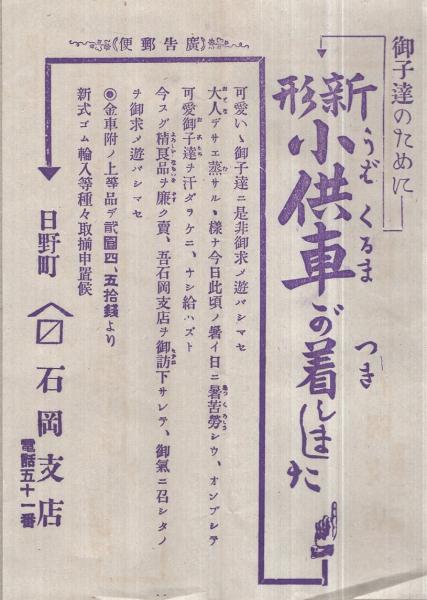 御子達のために
新形小供車が着しました
うば くるま つき
《廣告郵便》
可愛いゝ御子達ニ是非御求メ遊バシマセ
大人デサエ蒸サルヽ様ナ今日此頃ノ暑イ日ニ暑苦勞シウ、オンブシテ
可愛御子達ヲ汗ダラケニ、ナシ給ハズト
今スグ精良品ヲ廉ク賣、吾石岡支店ヲ御訪下サレテ、御氣ニ召シタノ
ヲ御求メ遊バシマセ
◉金車附ノ上等品デ貳圓四、五拾錢より
新式ゴム輪入等種々取揃申置候
日野町 石岡支店
電話五十一番